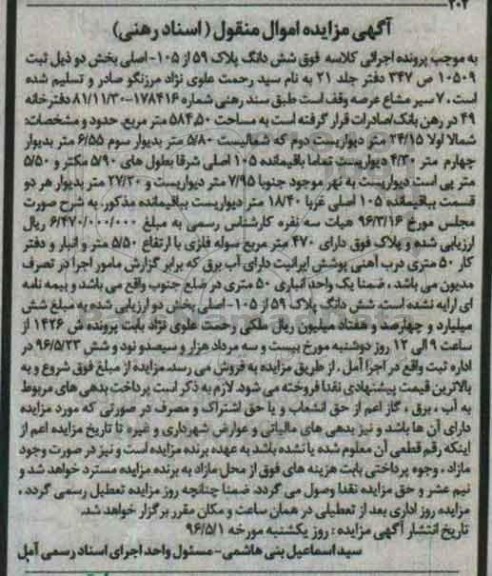 ۲۰۲
آگهی مزایده اموال منقول (اسناد رهنی)
به موجب پرونده اجرائی کلاسه فوق شش دانگ پلاک ۵۹ از ۱۰۵- اصلی بخش دو ذیل ثبت
۱۰۵۰۹ ص ۳۴۷ دفتر جلد ۲۱ به نام سید رحمت علوی نژاد مرزنگو صادر و تسلیم شده
است. ۷ سیر مشاع عرصه وقف است طبق سند رهنی شماره ۱۷۸۴۱۶-۸۱/۱۱/۳۰ دفترخانه
۴۹ در رهن بانک صادرات قرار گرفته است به مساحت ۵۸۴,۵۰ متر مربع. حدود و مشخصات:
شمالا اولا ۲۴/۱۵ متر دیواریست دوم که شمالیست ۵/۸۰ متر بدیوار سوم ۶/۵۵ متر بدیوار
چهارم متر ۴/۳۰ دیواریست تماما باقیمانده ۱۰۵ اصلی شرقا بطول های ۵/۹۰ مکتر و ۵/۵۰
متر پی است دیواریست به نهر موجود جنوبا ۷/۹۵ متر دیواریست و ۲۷/۲۰ متر بدیوار هر دو
قسمت بباقیمانده ۱۰۵ اصلی غربا ۱۸/۴۰ متر دیواریست بباقیمانده مذکور، به شرح صورت
مجلس مورخ ۹۶/۳/۱۶ هیات سه نفره کارشناس رسمی به مبلغ ۶/۴۷۰/۰۰۰/۰۰۰ ریال
ارزیابی شده و پلاک فوق دارای ۴۷۰ متر مربع سوله فلزی با ارتفاع ۵/۵۰ متر و انبار و دفتر
کار ۵۰ متری درب آهنی پوشش ایرانیت دارای آب برق که برابر گزارش مامور اجرا در تصرف
مدیون می باشد، ضمنا یک واحد انباری ۵۰ متری در ضلع جنوب واقع می باشد و بیمه نامه
ای ارایه نشده است. شش دانگ پلاک ۵۹ از ۱۰۵- اصلی بخش دو ارزیابی شده به مبلغ شش
میلیارد و چهارصد و هفتاد میلیون ریال ملکی رحمت علوی نژاد بابت پرونده ش ۱۴۲۶ از
ساعت ۹ الی ۱۲ روز دوشنبه مورخ بیست و سه مرداد هزار و سیصدو نود و شش ۹۶/۵/۲۳ در
اداره ثبت واقع در اجرا آمل، از طریق مزایده به فروش می رسد. مزایده از مبلغ فوق شروع و به
بالاترین قیمت پیشنهادی نقدا فروخته می شود. لازم به ذکر است پرداخت بدهی های مربوط
به آب، برق، گاز اعم از حق انشعاب و یا حق اشتراک و مصرف در صورتی که مورد مزایده
دارای آن ها باشد و نیز بدهی های مالیاتی و عوارض شهرداری و غیره تا تاریخ مزایده اعم از
اینکه رقم قطعی آن معلوم شده یا نشده باشد به عهده برنده مزایده است و نیز در صورت وجود
مازاد، وجوه پرداختی بابت هزینه های فوق از محل مازاد به برنده مزایده مسترد خواهد شد و
نیم عشر و حق مزایده نقدا وصول می گردد. ضمنا چنانچه روز مزایده تعطیل رسمی گردد،
مزایده روز اداری بعد از تعطیلی در همان ساعت و مکان مقرر برگزار خواهد شد.
تاریخ انتشار آگهی مزایده: روز یکشنبه مورخه ۹۶/۵/۱
سید اسماعیل بنی هاشمی-مسئول واحد اجرای اسناد رسمی آمل